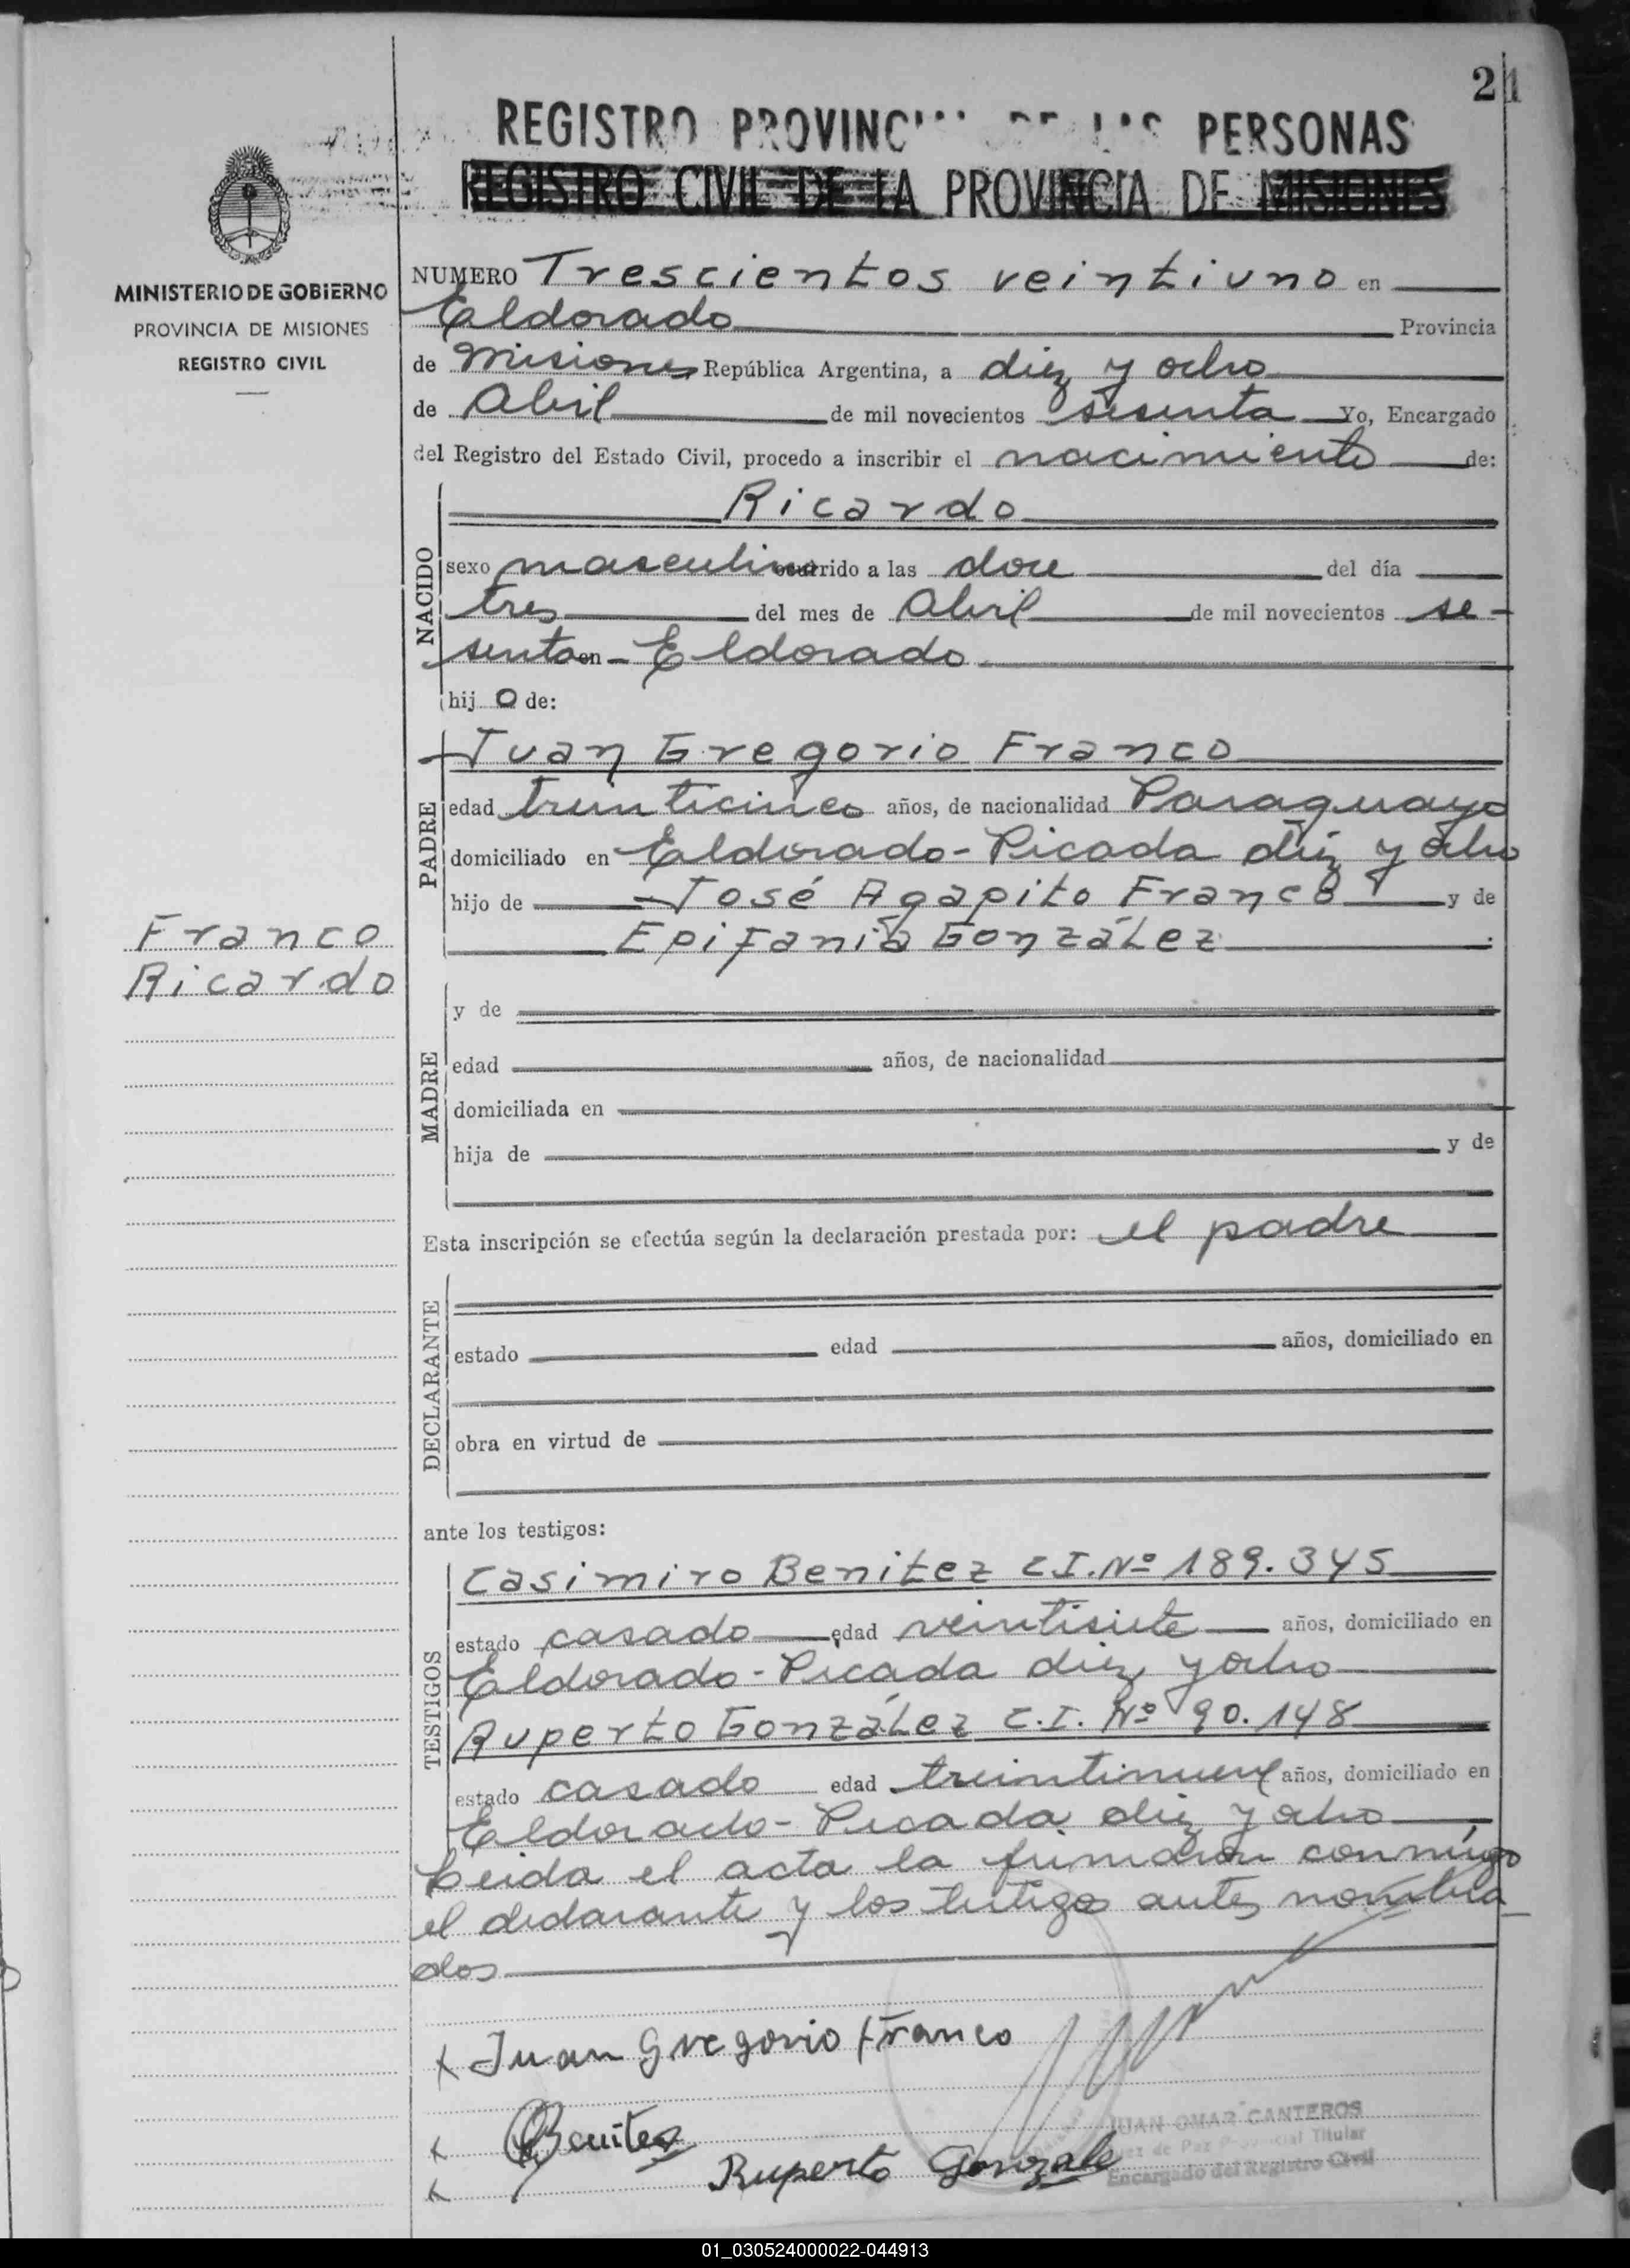 21
REGISTRO PROVINC DE LAS PERSONAS
REGISTRO CIVIL DE LA PROVINCIA DE MISIONES
MINISTERIO DE GOBIERNO
PROVINCIA DE MISIONES
REGISTRO CIVIL
NUMERO Trescientos veintiuno en
Eldorado Provincia
de Misiones República Argentina, a diez y ocho
de Abril de mil novecientos sesenta Yo, Encargado
del Registro del Estado Civil, procedo a inscribir el nacimiento de:
NACIDO
Ricardo
sexo masculino ocurrido a las doce del día
tres del mes de Abril de mil novecientos se-
senta en - Eldorado
hij o de:
PADRE
Juan Gregorio Franco
edad treinticinco años, de nacionalidad Paraguayo
domiciliado en Eldorado - Picada diez y ocho
hijo de José Agapito Franco y de
Epifania González
Franco
Ricardo
MADRE
y de
edad años, de nacionalidad
domiciliada en
hija de y de
Esta inscripción se efectúa según la declaración prestada por: el padre
DECLARANTE
estado edad años, domiciliado en
obra en virtud de
ante los testigos:
TESTIGOS
Casimiro Benitez C.I. Nº 189.345
estado casado edad veintisiete años, domiciliado en
Eldorado - Picada diez y ocho
Ruperto González C.I. Nº 90.148
estado casado edad treintinueve años, domiciliado en
Eldorado - Picada diez y ocho
Leida el acta la firmaron conmigo
el declarante y los testigos antes nombra-
dos
x Juan Gregorio Franco
x Benitez
x Ruperto Gonzale
JUAN OMAR CANTEROS
Juez de Paz Provincial Titular
Encargado del Registro Civil
01_030524000022-044913